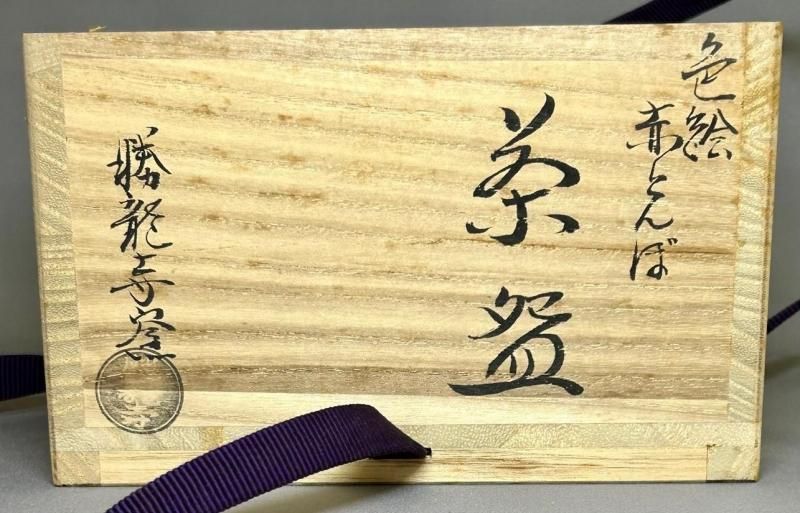 色絵
赤とんぼ
茶盌
勝龍寺窯